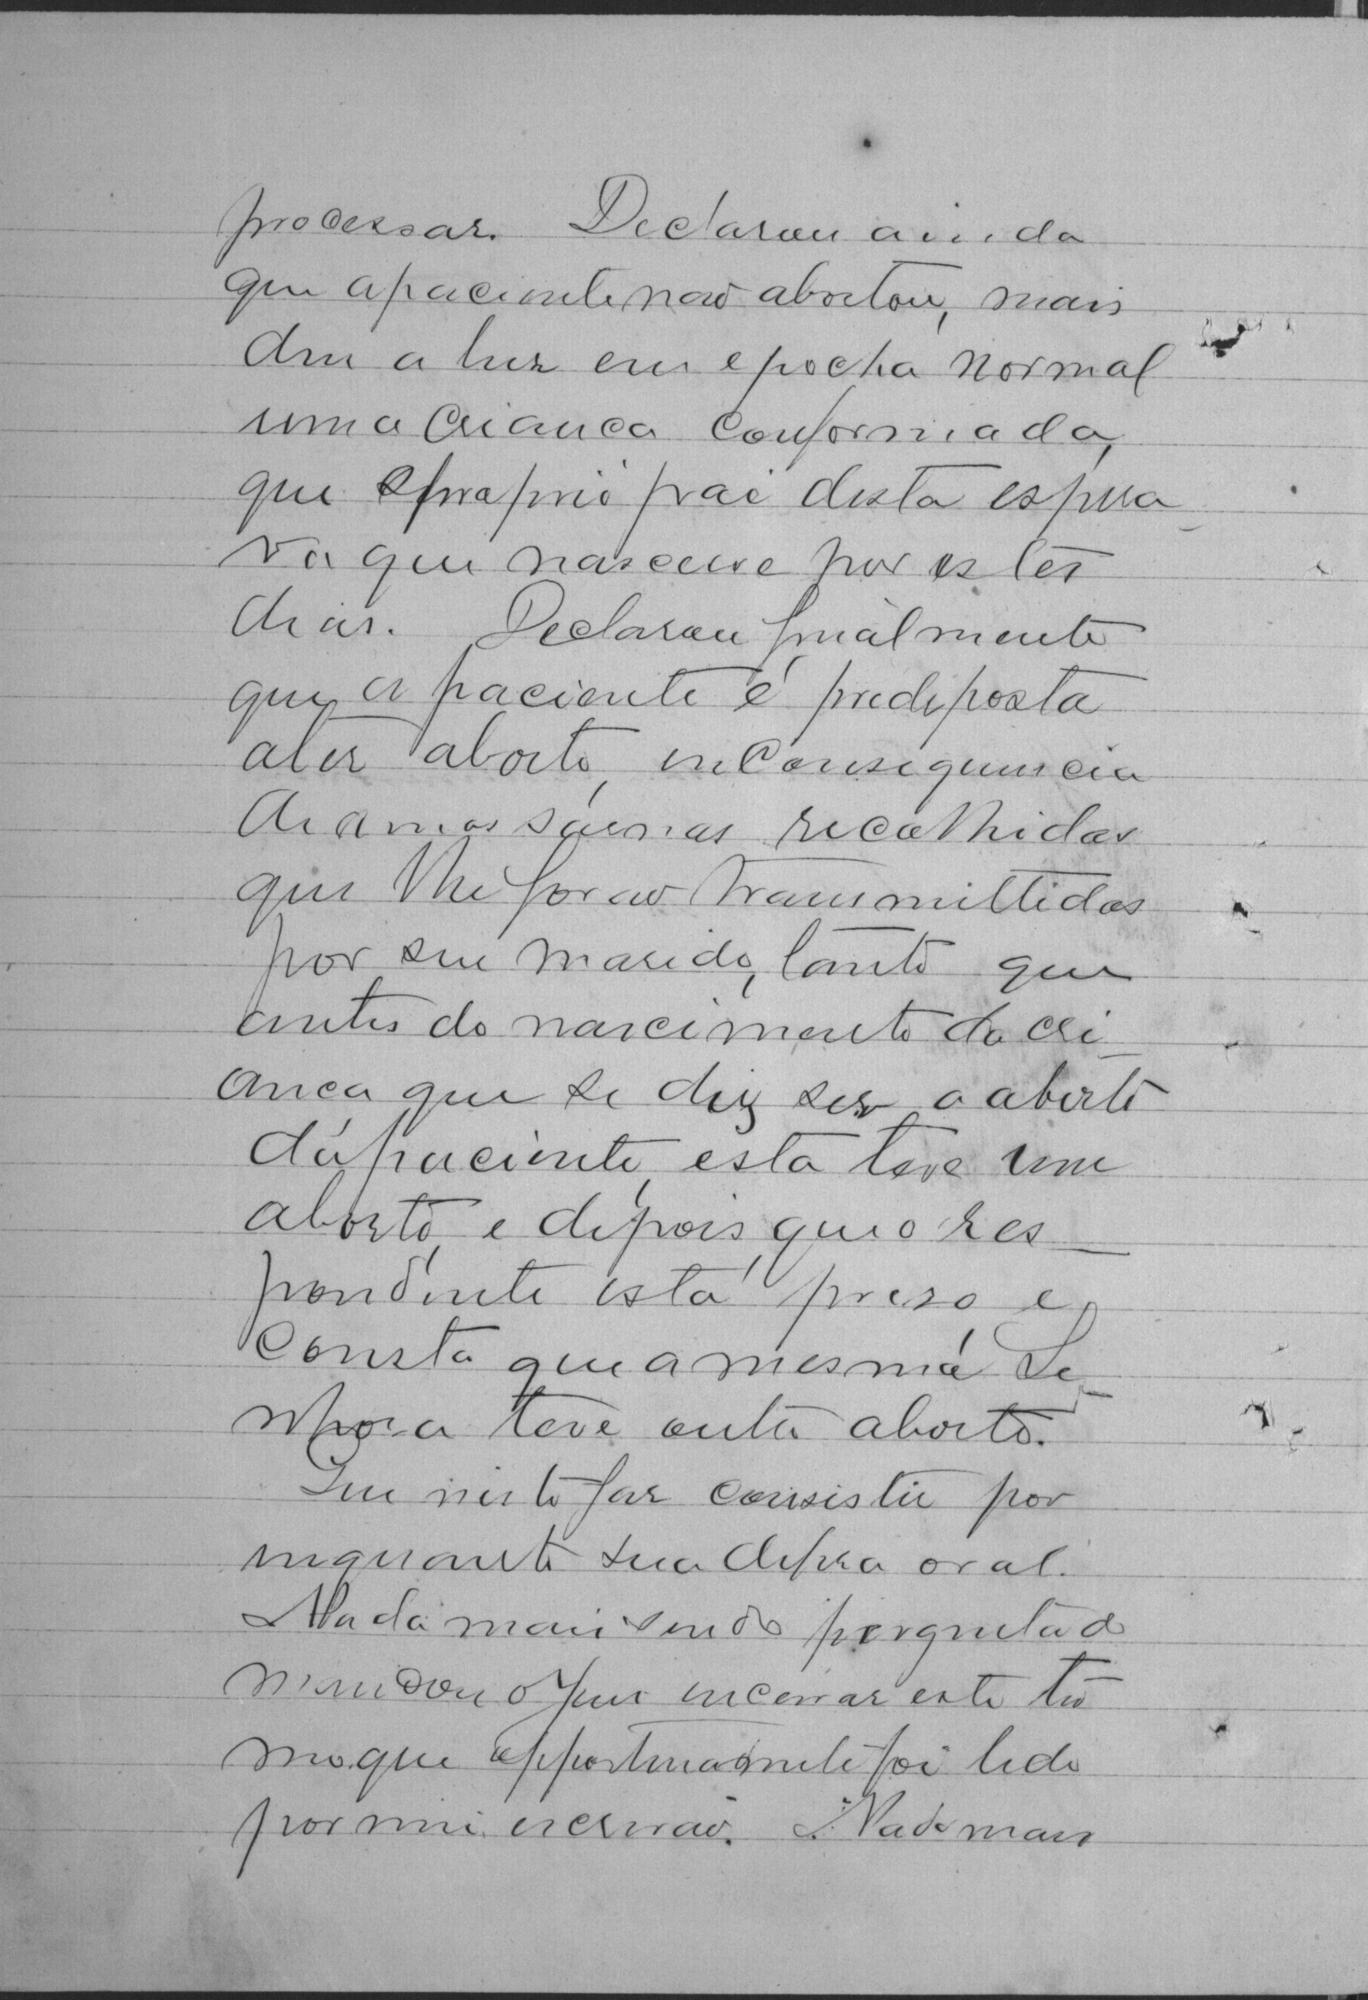 processar. Declarou ainda
que a paciente nao abortou, mais
deu a luz em epocha normal
uma crianca conformada,
que o proprio pai desta espera_
va que nascesse por estes
dias. Declarou finalmente
que a paciente é predisposta
a ter aborto, em consequencia
recolhidas
que lhe forao transmittidas
por seu marido, tanto que
antes do nascimento da cri_
anca que se diz ser o aborto
da paciente, esta teve um
aborto, e depois que o res_
pondente está preso e,
consta que a mesma Se_
nhora teve outro aborto.
Que nisto faz consistir por
enquanto sua defeza oral.
Nada mais sendo perguntado
mandou o Juiz encerrar este ter
mo que opportunamente foi lido
por mim escrivão. Nada mais